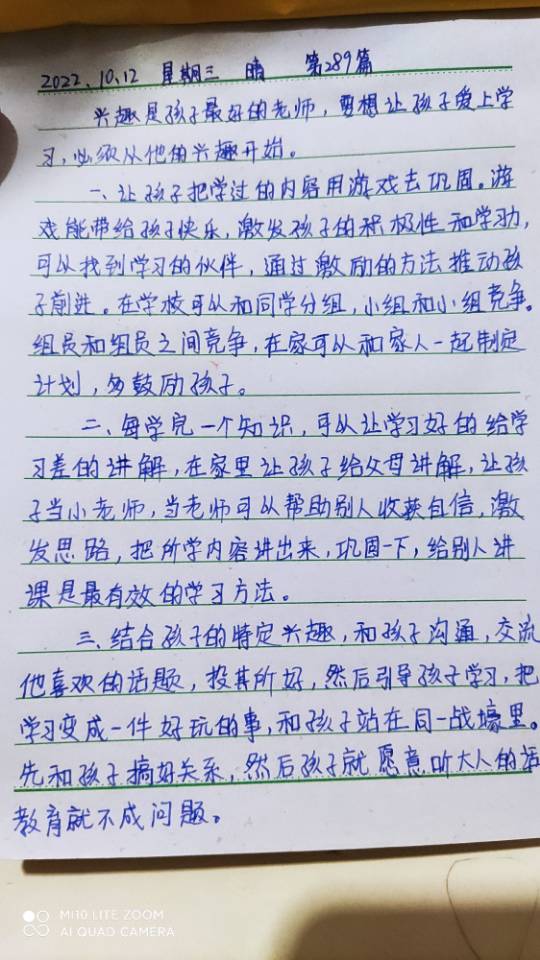 2022.10.12 星期三 晴 第289篇
兴趣是孩子最好的老师，要想让孩子爱上学
习，必须从他的兴趣开始。
一、让孩子把学过的内容用游戏去巩固。游
戏能带给孩子快乐，激发孩子的积极性和学习力，
可以找到学习的伙伴，通过激励的方法推动孩
子前进。在学校可以和同学分组，小组和小组竞争。
组员和组员之间竞争，在家可以和家人一起制定
计划，多鼓励孩子。
二、每学完一个知识，可以让学习好的给学
习差的讲解，在家里让孩子给父母讲解，让孩
子当小老师，当老师可以帮助别人收获自信，激
发思路，把所学内容讲出来，巩固一下，给别人讲
课是最有效的学习方法。
三、结合孩子的特定兴趣，和孩子沟通，交流
他喜欢的话题，投其所好，然后引导孩子学习，把
学习变成一件好玩的事，和孩子站在同一战壕里。
先和孩子搞好关系，然后孩子就愿意听大人的话
教育就不成问题。
MI10 LITE ZOOM
AI QUAD CAMERA